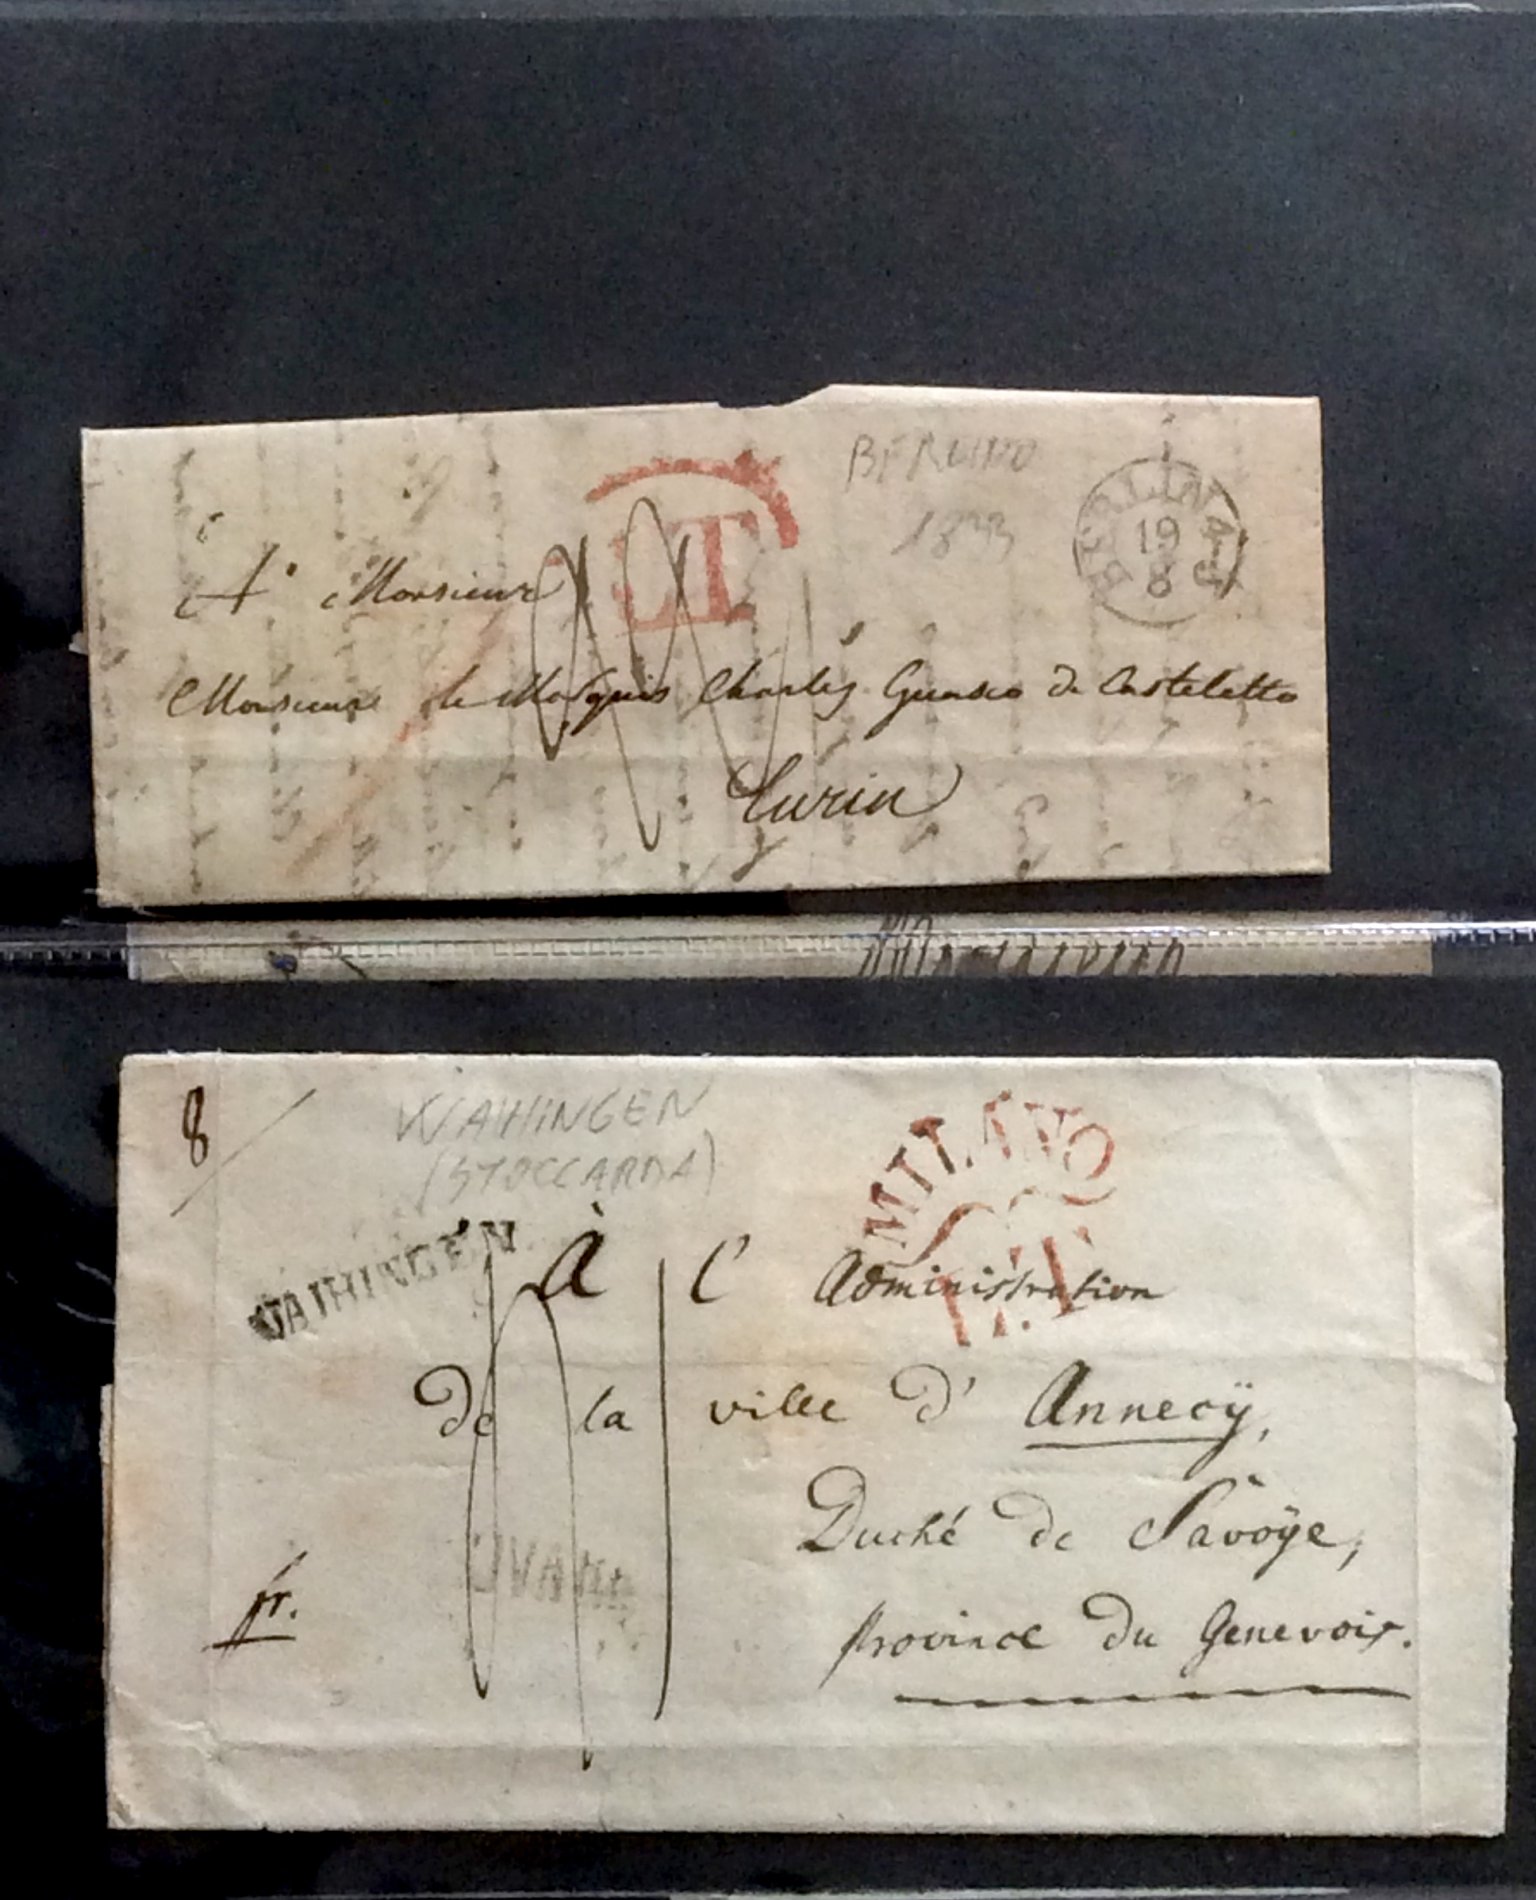 BERLINO
1833
BERLIN
19
8
LT
A Monsieur
Monsieur le Marquis Charles Guasco de Casteletto
Turin
8
WAIHINGEN
(STOCCARDA)
MILANO
L.T
VAIHINGEN
À l' Administration
de la ville d' Annecÿ,
Duché de Savoÿe,
fr.
province du Genevois.